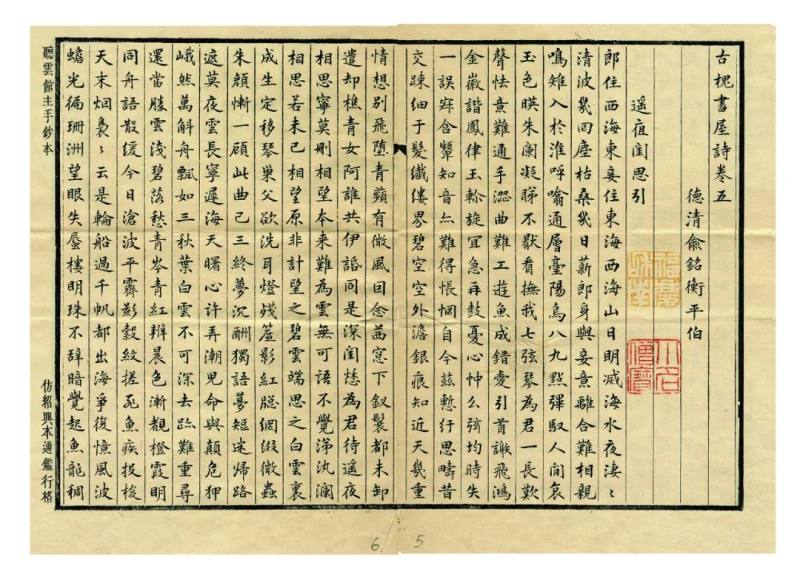 古槐書屋詩卷五
德清俞銘衡平伯
遥夜閨思引
郎住西海東妾住東海西海山日明滅海水夜淒〻
清波幾回塵枯桑幾日薪郎身與妾意離合難相親
鳴雉入於淮呼喻通層臺陽烏八九點彈馭人間哀
玉色暎朱闌凝睇不厭看撫我七弦琴為君一長歎
聲怯意難通手澀曲難工遊魚成錯愛引首謝飛鴻
金徽諧鳳律玉軫旋宜急再鼓憂心忡么弦均時失
一誤寤含顰知音亦難得悵惘自今兹慙行思疇昔
交疎細于髮纖縷界碧空空外澹銀痕知近天幾重
情想別飛墮青蘋有微風回念茜窗下釵鬟都未卸
遣却樵青女阿誰共伊話同是深閨愁為君待遥夜
相思寧莫刪相望本來難為雲無可語不覺涕汍瀾
相思若未已相望原非計望之碧雲端思之白雲裏
成生定移琴巢父欲洗耳燈殘羞影紅牕網綴微蟲
朱顏慚一顧此曲已三終夢沉酬獨語夢短迷歸路
遮莫夜雲長寧遲海天曙心許弄潮兒命與顛危狎
峨然萬斛舟飄如三秋葉白雲不可深去跡難重尋
還當勝雲淺碧落愁青岑青紅辨晨色漸覩橙霞明
同舟語散緩今日滄波平霽影縠紋搓飛魚疾投梭
天末烟裊〻云是輪船過千帆都出海爭復憶風波
蟾光徧珊洲望眼失蜃樓明珠不辭暗覺起魚龍稠
聽雲館主手鈔本
仿紹興本通鑑行格
5
6